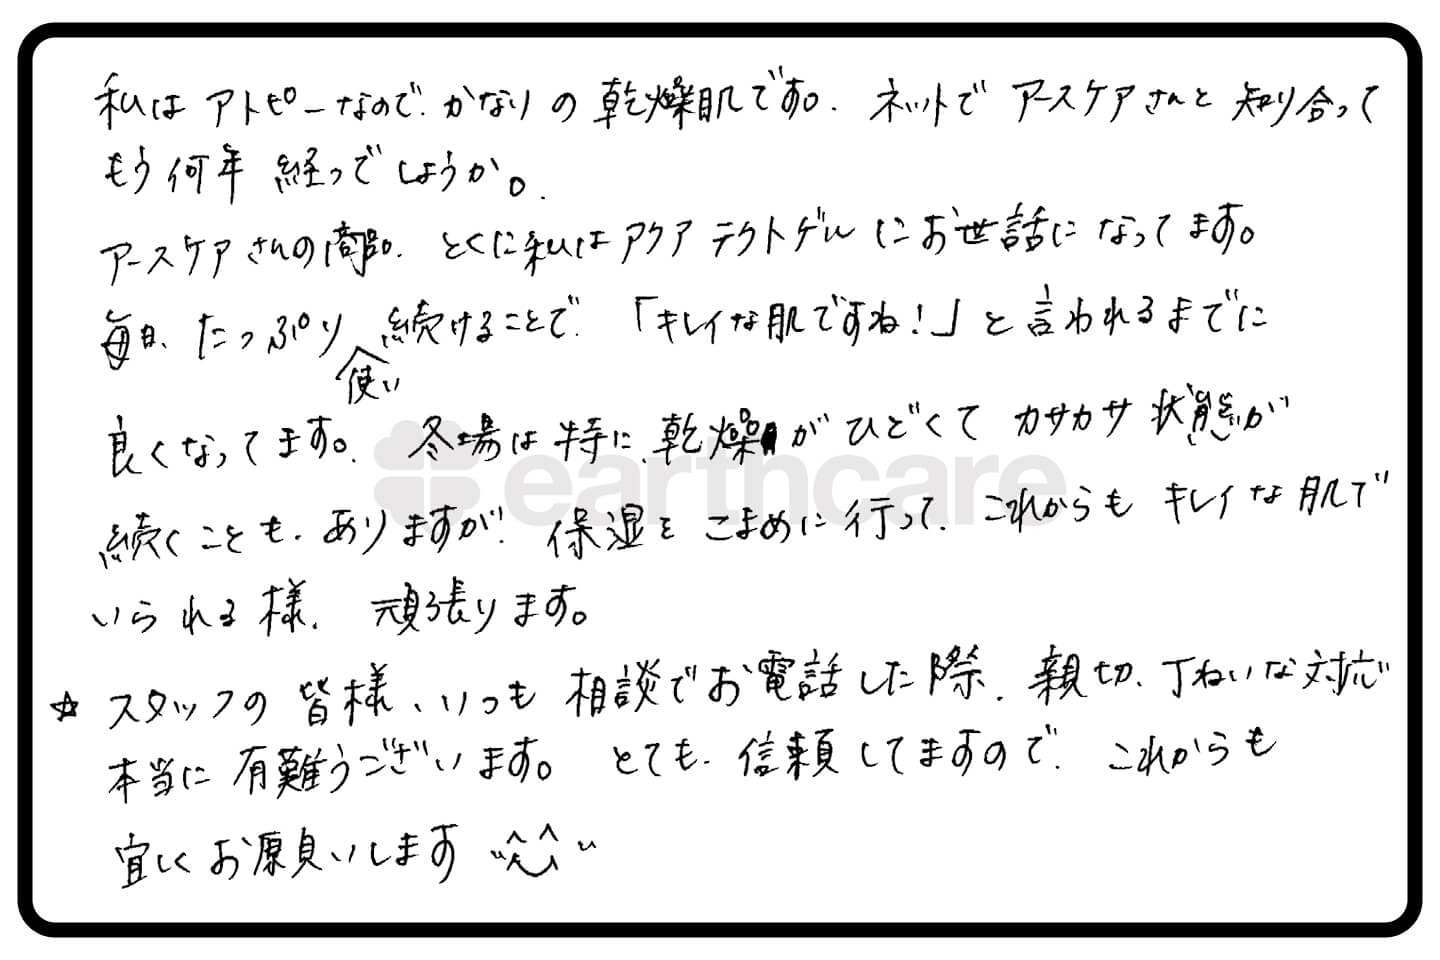 私はアトピーなので、かなりの乾燥肌です。ネットでアースケアさんと知り合って
もう何年経つでしょうか。
アースケアさんの商品、とくに私はアクアテクトゲルにお世話になってます。
毎日、たっぷり使い続けることで、「キレイな肌ですね!」と言われるまでに
良くなってます。冬場は特に、乾燥がひどくてカサカサ状態が
続くことも、ありますが、保湿をこまめに行って、これからもキレイな肌で
いられる様、頑張ります。
☆スタッフの皆様、いつも相談でお電話した際、親切、丁ねいな対応
本当に有難うございます。とても、信頼してますので、これからも
宜しくお願いします
earthcare